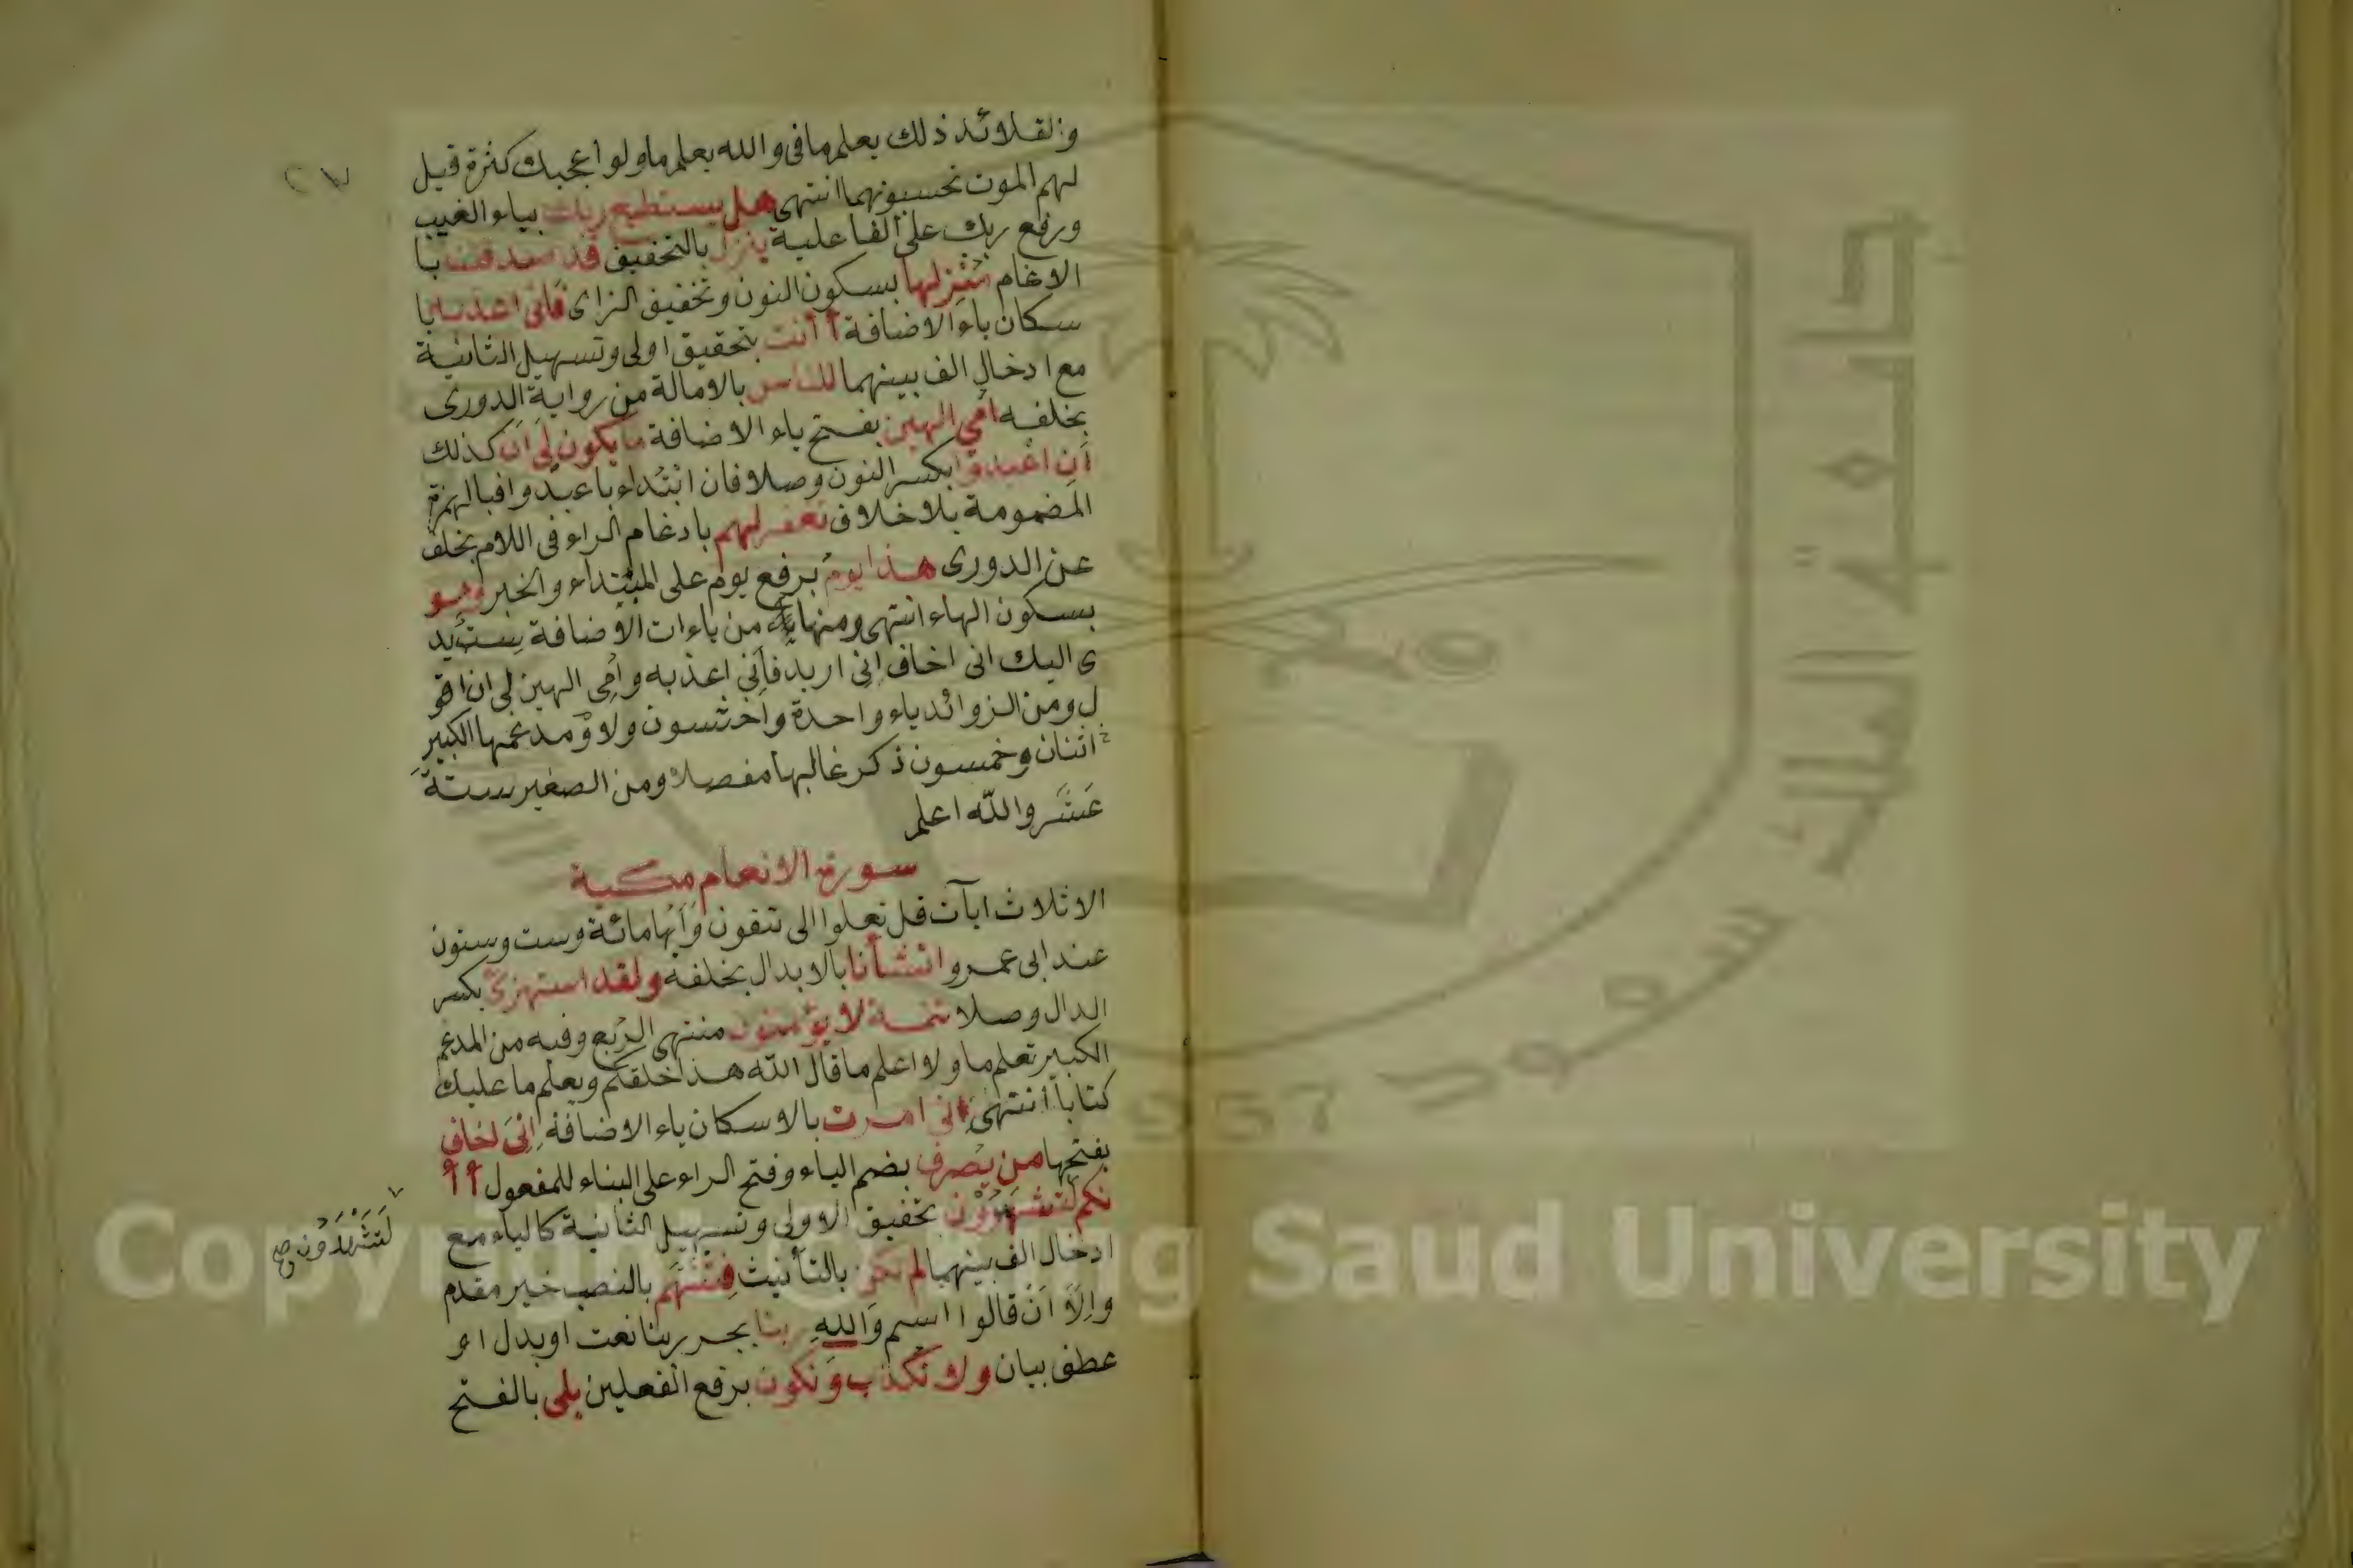 والقلائد ذلك يعلم ما فى والله يعلم ما ولو اعجبك كثرة قيل
لهم الموت تحسبونهما انتهى هل يستطيع ربك بياء الغيب
ورفع ربك على الفاعلية ينزل بالتخفيف قد صدقتنا با
الادغام منزلها بسكون النون وتخفيف الزاى فانى اعذبه با
سكان ياء الاضافة أأنت بتحقيق اولى وتسهيل الثانية
مع ادخال الف بينهما للناس بالامالة من رواية الدورى
بخلفه امي الهين بفتح ياء الاضافة ما يكون لى ان كذلك
أن اعبدوا بكسر النون وصلا فان ابتداء باعبدوا فبالهمزة
المضمومة بلا خلاف تغفر لهم بادغام الراء فى اللام بخلف
عن الدورى هذا يوم برفع يوم على المبتداء والخبر وهو
بسكون الهاء انتهى ومنها من ياءات الاضافة ست يد
ى اليك انى اخاف انى اريد فانى اعذبه وامى الهين لى ان اقو
ل ومن الزوائد ياء واحدة واخشون ولا ومدغمها الكبير
اثنان وخمسون ذكر غالبها مفصلا ومن الصغير ستة
عشر والله اعلم
سورة الانعام مكية
الاثلاث ايآت قل تعلوا الى تتقون وآيها مائة وست وستون
عند ابى عمرو انشأنا بالابدال بخلفه ولقد استهزئ بكسر
الدال وصلا تتمة لا يؤمنون منتهى الربع وفيه من المدغم
الكبير تعلم ما ولا اعلم ما قال الله هذا خلقكم ويعلم ما عليك
كتابا انتهى انى امرت بالاسكان ياء الاضافة انى اخاف
بفتحها من يصرف بضم الياء وفتح الراء على البناء للمفعول أأ
نكم لتشهدون تحقيق الاولى وتسهيل الثانية كالياء مع
لتشهدون صح
ادخال الف بينهما لم تكن بالتأنيث فتنتهم بالنصب خبر مقدم
والا ان قالوا اسم والله ربنا بجر ربنا نعت او بدل او
عطف بيان ولا نكذب ونكون برفع الفعلين بلى بالفتح
جامعة الملك سعود
1957
Copyright © King Saud University